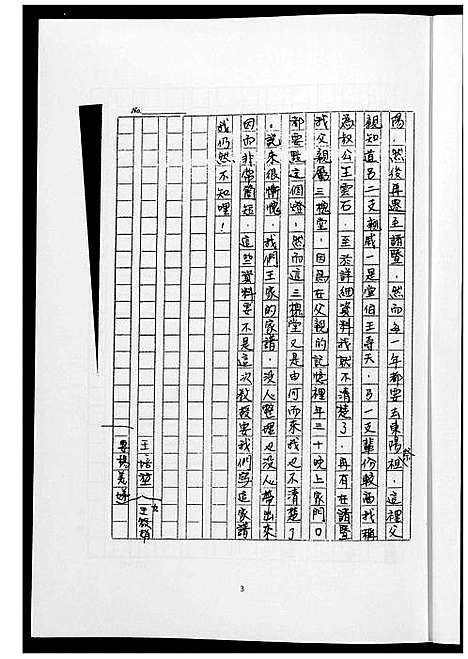 陽，然後再遷至諸暨，然而每一年都要去東陽祭祖，這裡父
親知道另二支親戚一是堂伯王尋天，另一支輩份較高我稱
為叔公王雲石，至於詳細資料我就不清楚了，再有在諸暨
我父親屬三槐堂，因為在父親的記憶裡年三十晚上家門口
都要點這個燈，然而這三槐堂又是由何而來我也不清楚了
，說來很慚愧，我們王家的家譜，沒人整理也沒人帶出來
因而非常簡短，這些資料要不是這次教授要我們寫這家譜
我仍然不知哩！
No.
王培堃
妻楊美
女王筱
3